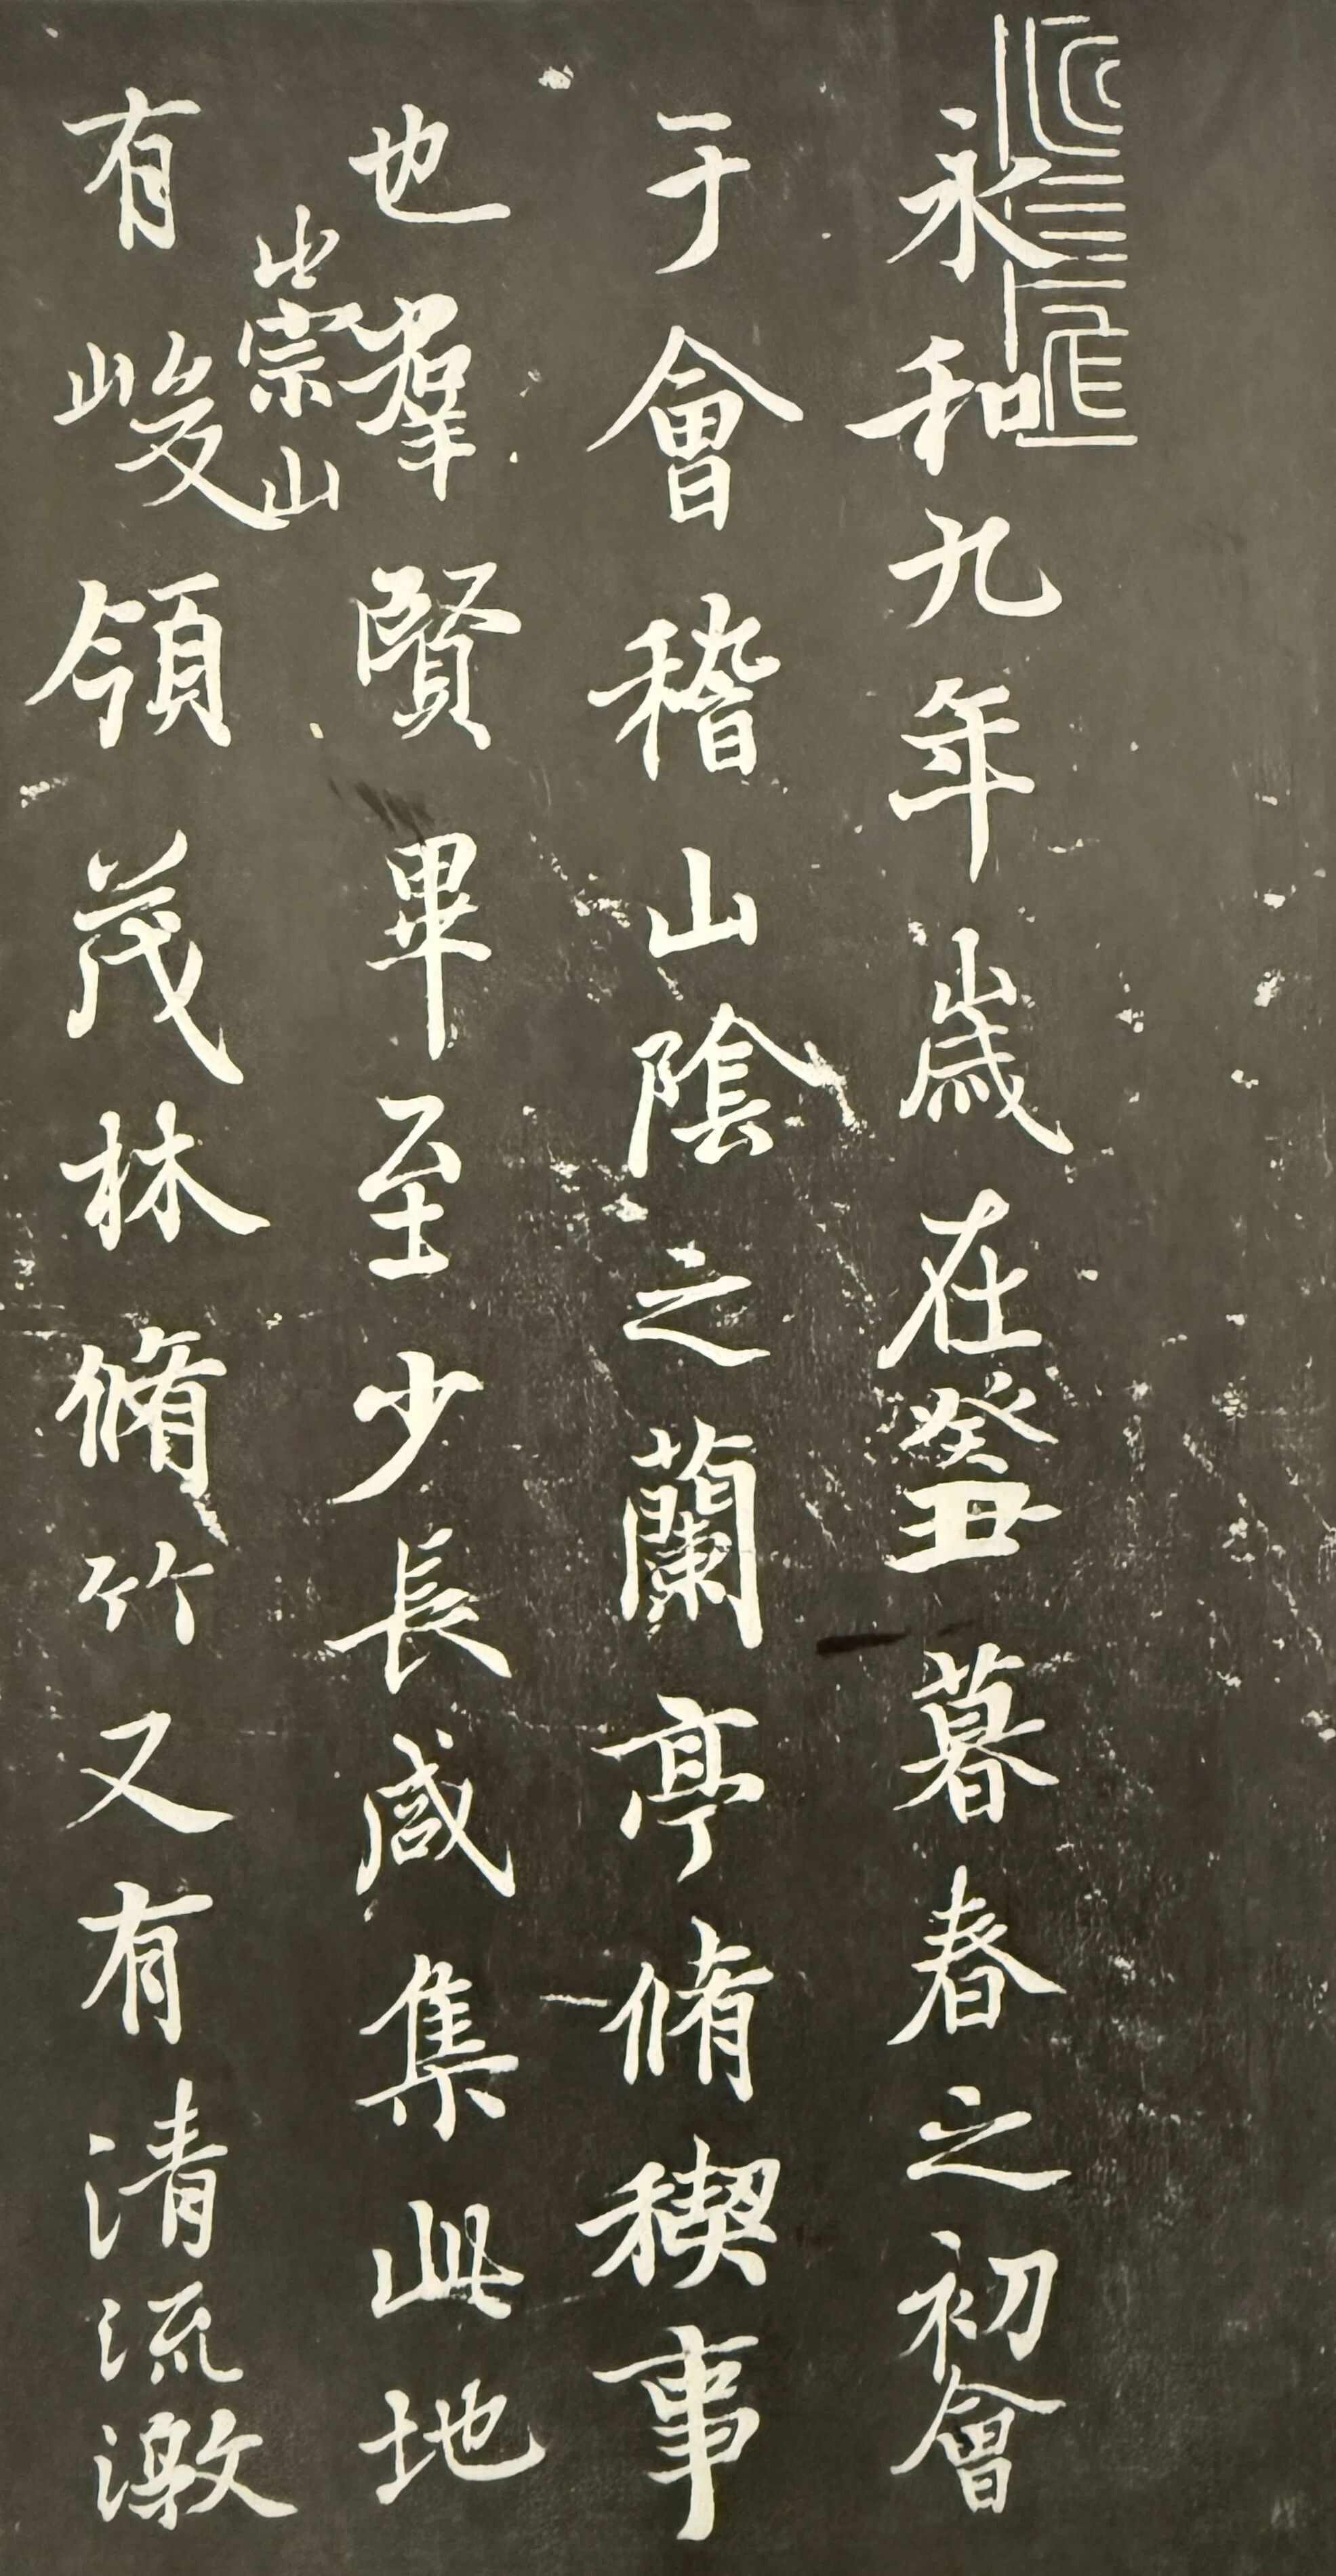 永和九年歲在癸丑暮春之初會
于會稽山陰之蘭亭脩稧事
也羣賢畢至少長咸集此地
崇山
有峻領茂林脩竹又有清流激